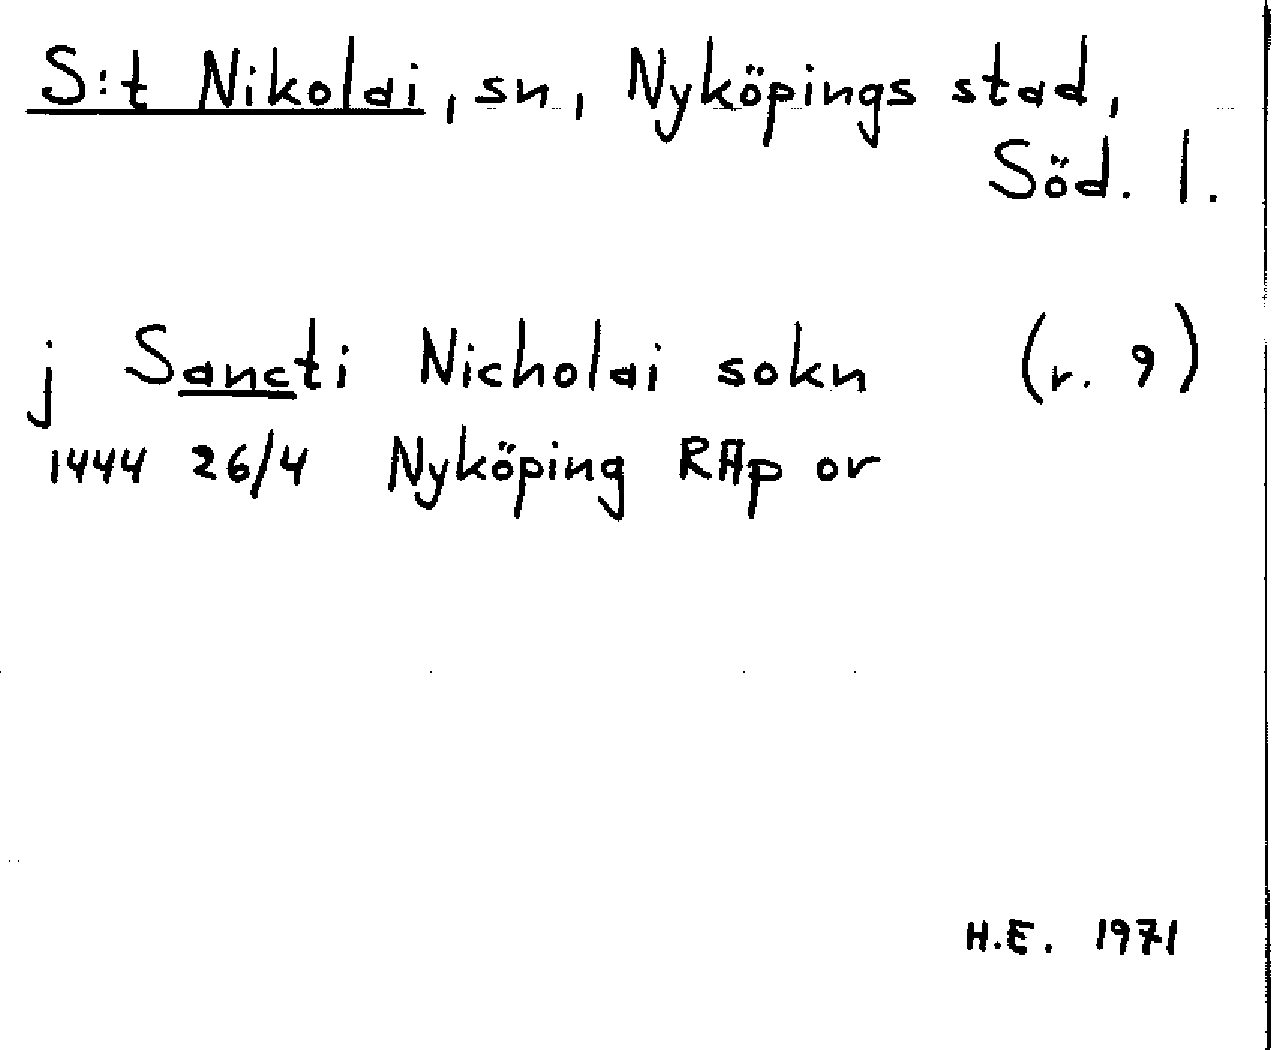 S:t Nikolai, sn, Nyköpings stad,
Söd. l.
j Sancti Nicholai sokn (r. 9)
1444 26/4 Nyköping RAp or
H.E. 1971